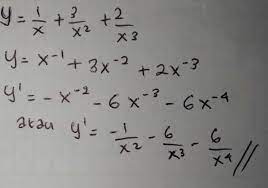 y = 1/x + 3/x² + 2/x³
y = x⁻¹ + 3x⁻² + 2x⁻³
y' = -x⁻² - 6x⁻³ - 6x⁻⁴
atau y' = -1/x² - 6/x³ - 6/x⁴ //